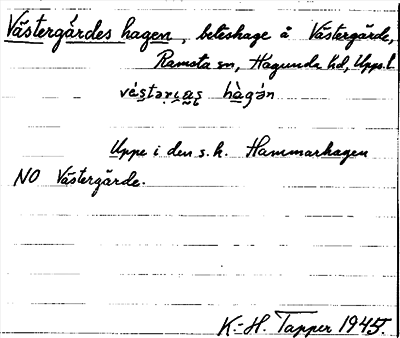 Västergårdes hagen, beteshage å Västergärde,
Ramsta sn, Hagunda hd, Upps. l
hàgån
Uppe i den s. k. Hammarhagen
NO Västergärde.
K.-H. Tapper 1945.